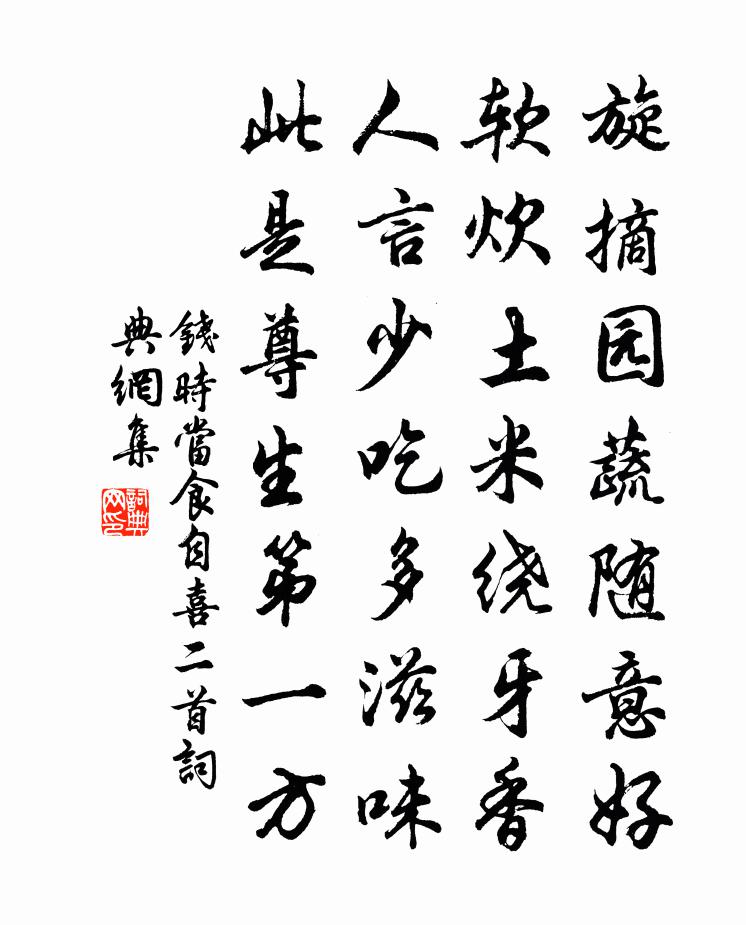 旋摘园蔬随意好
软炊土米绕牙香
人言少吃多滋味
此是尊生第一方
錢時當食自喜二首詞
典網集
詞典
网印